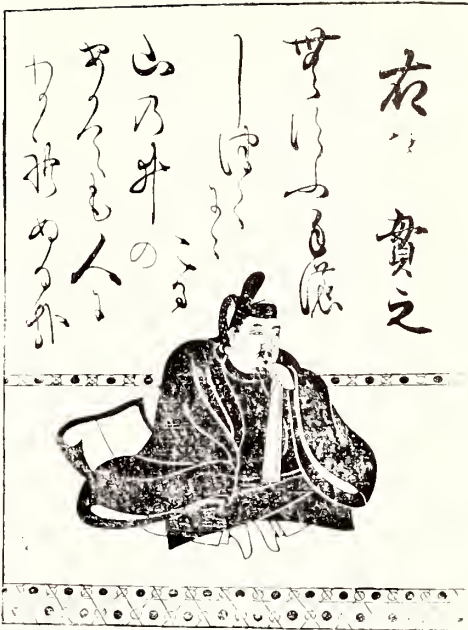 右 貫之
むすふ手濃
しつくにゝ
こる
山乃井の
あかても人に
わかれぬる哉